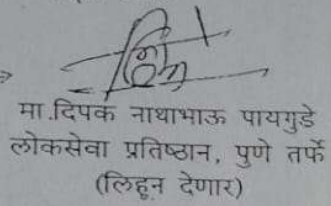 मा.दिपक नाथाभाऊ पायगुडे
लोकसेवा प्रतिष्ठान, पुणे तर्फे
(लिहून देणार)